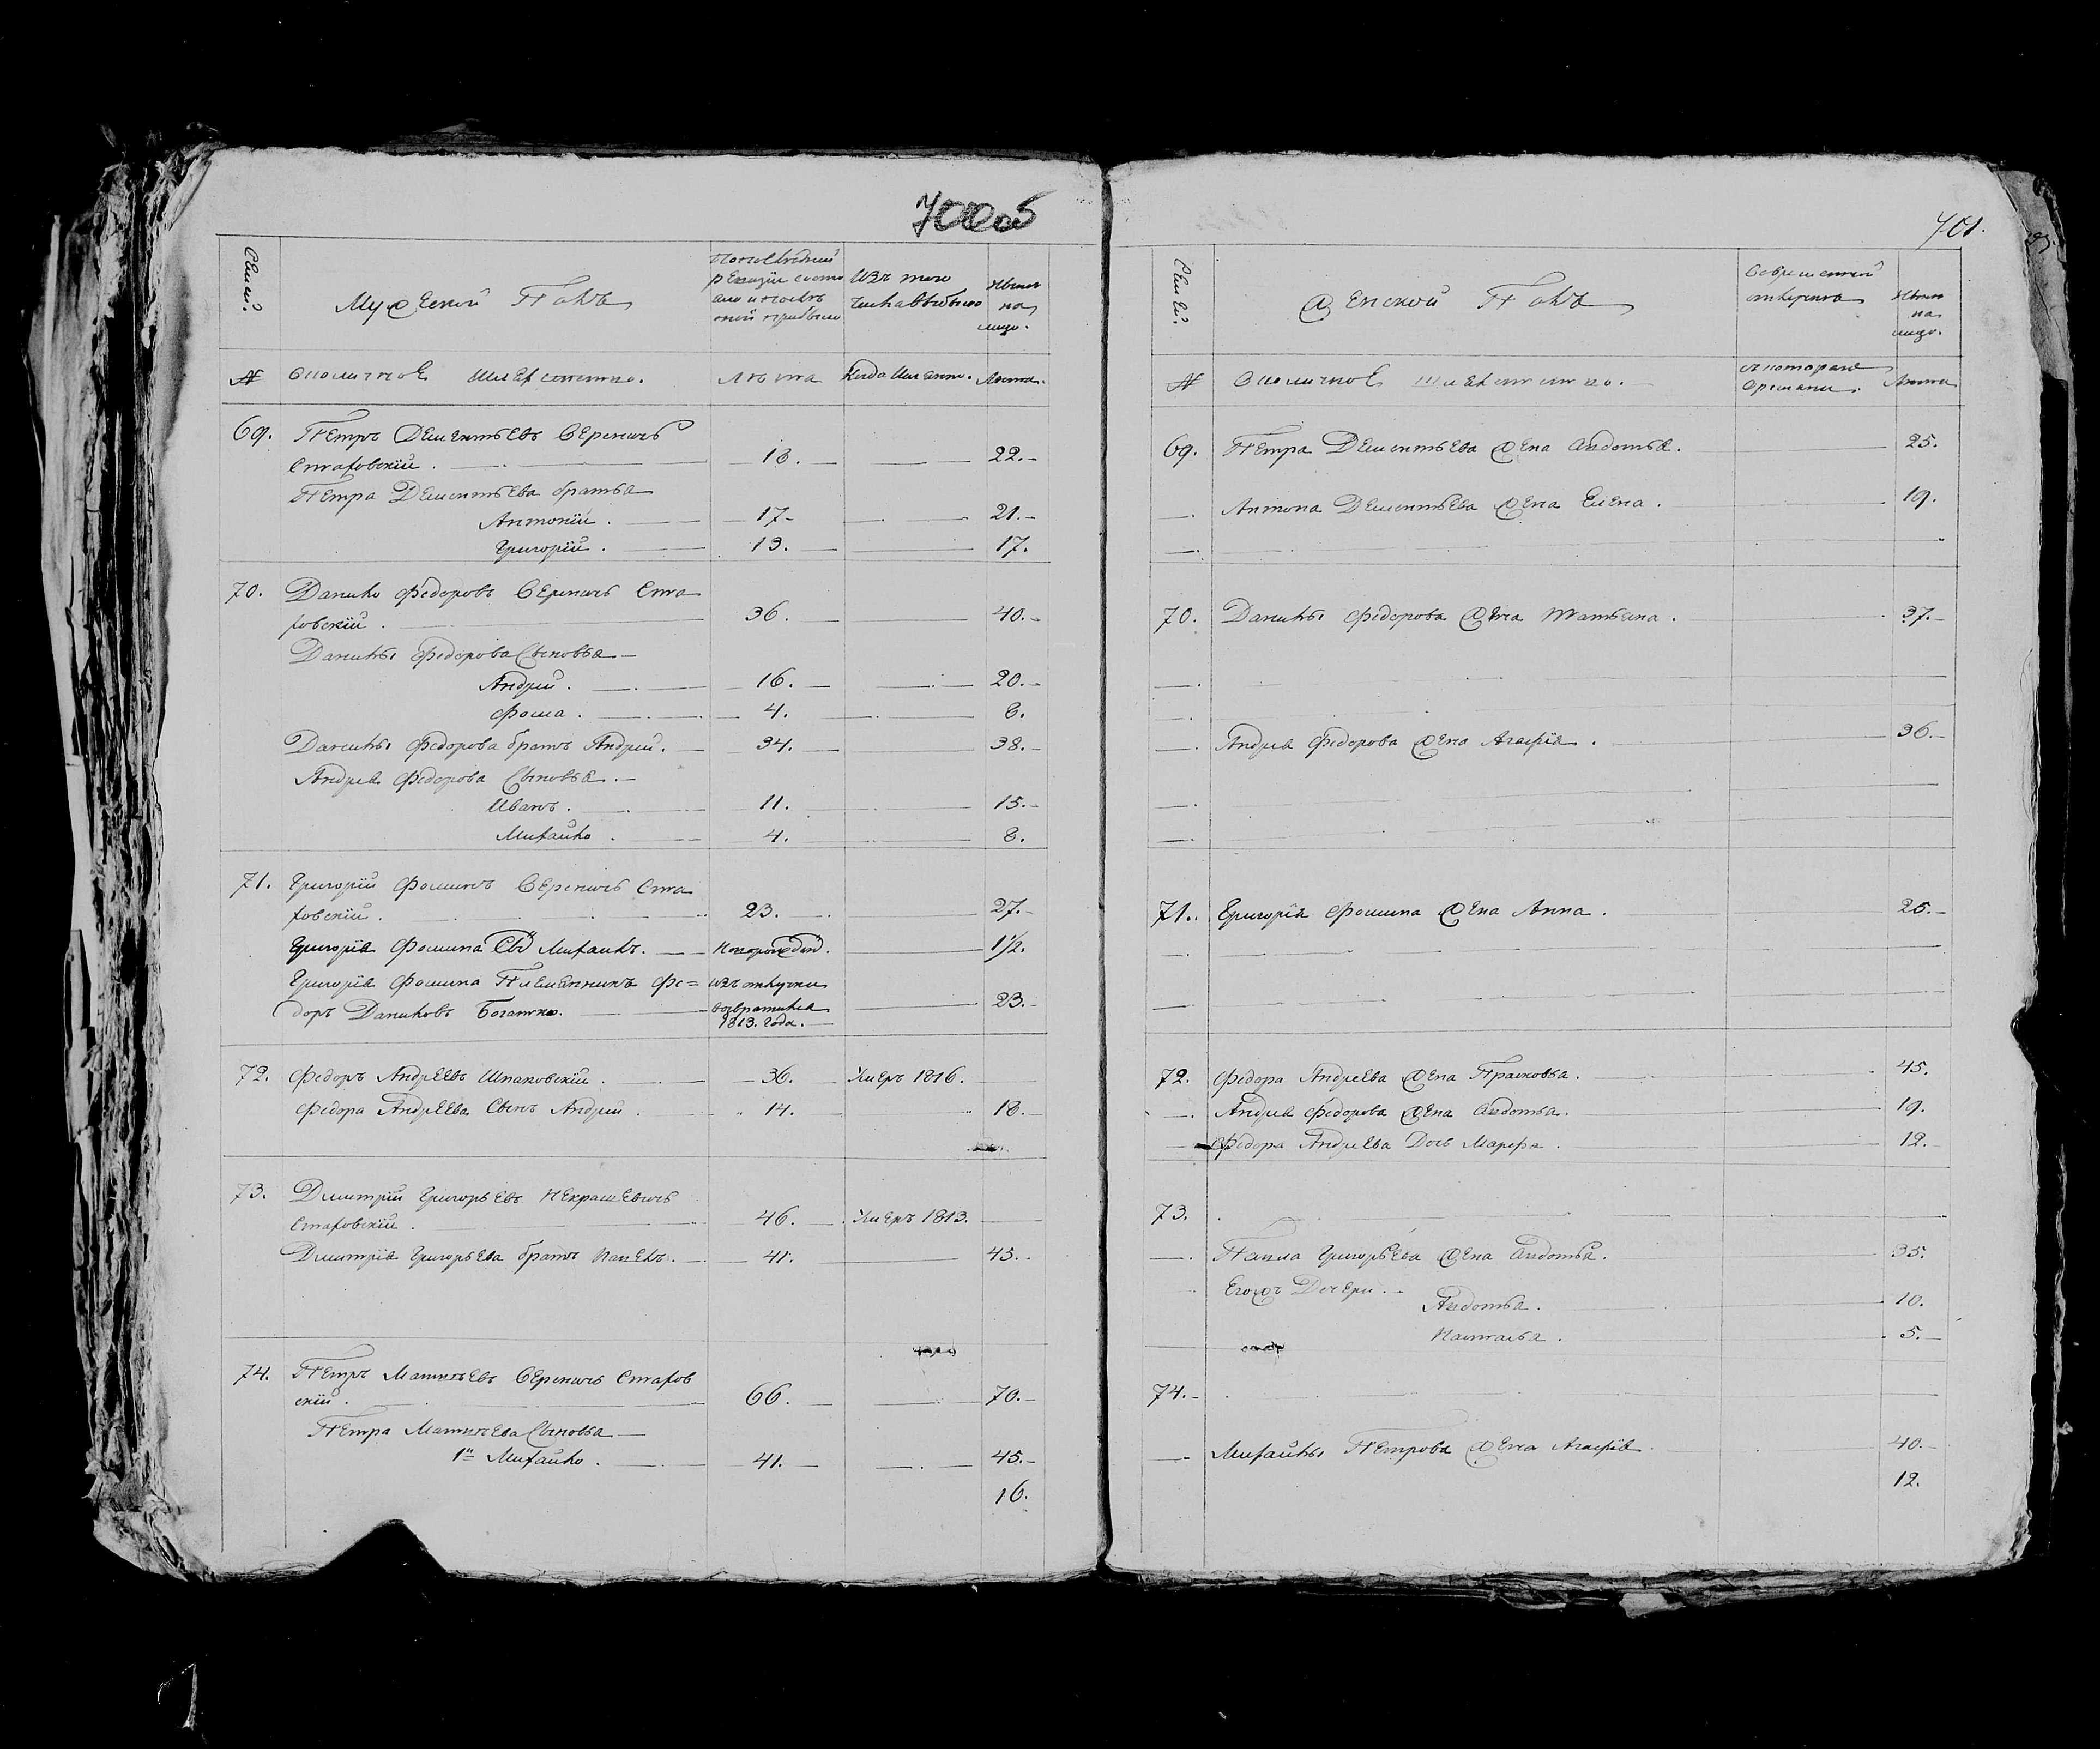 700об
Семей.
Мужеской Полъ
Последней
ревизіи состо
ало и послѣ
оной прибыло
Изъ того
числа выбыло
Нынѣ
на
лицо.
№
Околичное Шляхетство.
Лѣта
Когда Именно.
Лѣта.
69. Петръ Дементьевъ Верениъ
Стаховскій . 18. 22.
Петра Дементьева братья
Антоній . 17. 21.
Григорій . 13. 17.
70. Данило Федоровъ Стa
ховскій . 36. 40.
Данилы Федорова Сыновья
Андрей . 16. 20.
Фома . 4. 8.
Данилы Федорова братъ Андрей . 34. 38.
Андрея Федорова Сыновья .
Иванъ . 11. 15.
Михайло . 4. 8.
71. Григорій Фоминъ Ста
ховскій . 23. 27.
Григорія Фомина Сынъ Михаилъ . Новорожденъ . 1½.
Григорія Фомина Племянникъ Фе=
доръ Даниловъ Богатко. 23.
изъ отлучки
возвратился
1813. года .
72. Федоръ Андреевъ Шпаковскій . 36. Умеръ 1816.
Федора Андреева Сынъ Андрей . 14. 18.
73. Дмитрій Григорьевъ Некрашевичъ
Стаховскій . 46. Умеръ 1813.
Дмитрія Григорьева братъ Павелъ . 41. 45.
74. Петръ Матвѣевъ Стахов
скій . 66. 70.
Петра Матвѣева Сыновья
1й Михайло . 41. 45.
16.
701.
Семей.
Женской Полъ
Во временной
отлучкѣ
Нынѣ
на
лицо.
№
Околичное Шляхетство.
съ котораго
времяни .
Лѣта
69. Петра Дементьева жена Авдотья . 25.
Антона Дементьева жена Елена . 19.
70. Данилы Федорова жена Татьяна . 37.
Андрея Федорова жена Агафія . 36.
71. Григорія Фомина жена Анна . 25.
72. Федора Андреева жена Прасковья . 45.
Андрея Федорова жена Авдотья . 19.
Федора Андреева Дочь Марфа . 12.
73.
Павла Григорьева жена Авдотья . 35.
Егожъ Дочери .
Авдотья . 10.
Наталья . 5.
74.
Михайлы Петрова жена Агафія 40.
12.